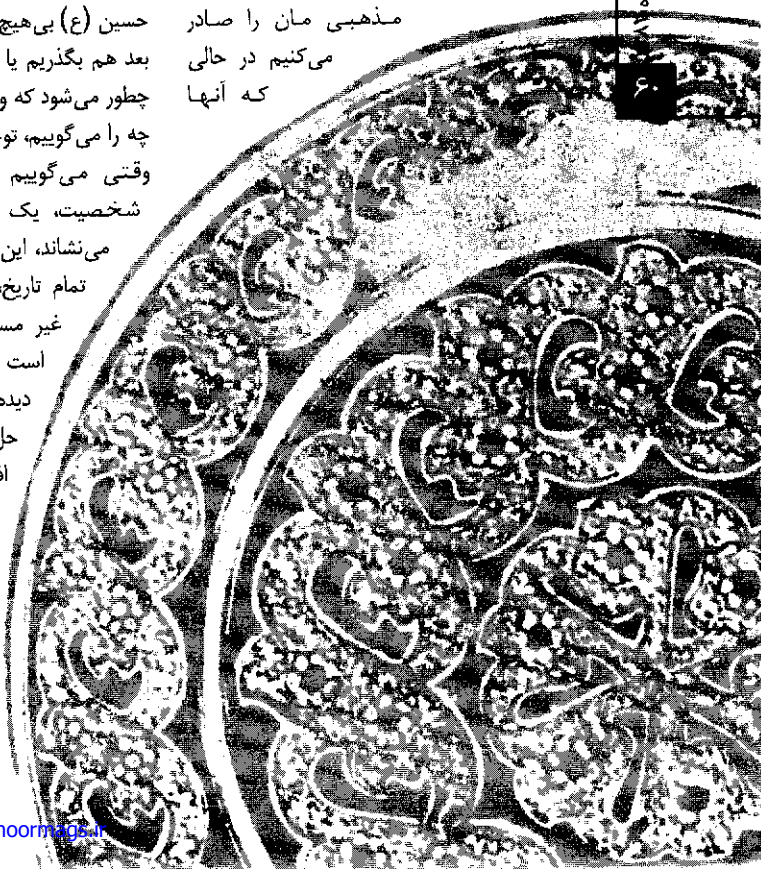 مذهبی مان را صادر
می‌کنیم در حالی
که آنها
حسین (ع) بی‌هیچ
بعد هم بگذریم یا
چطور می‌شود که و
چه را می‌گوییم، تو
وقتی می‌گوییم
شخصیت، یک
می‌نشاند، این
تمام تاریخ،
غیر مس
است
دیده
حل
اف
۶۰
noormags.ir